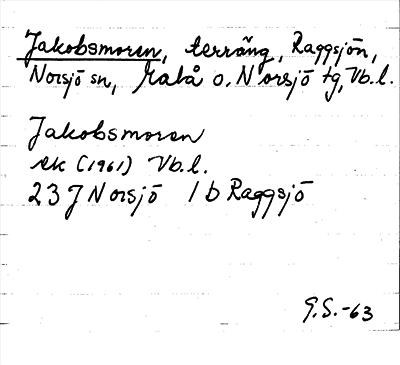 Jakobsmoren, terräng, Raggsjön,
Norsjö sn, Malå o. Norsjö tg, Vb.l.
Jakobsmoren
ek (1961) Vb.l.
23 J Norsjö 1 b Raggsjö
G.S.-63